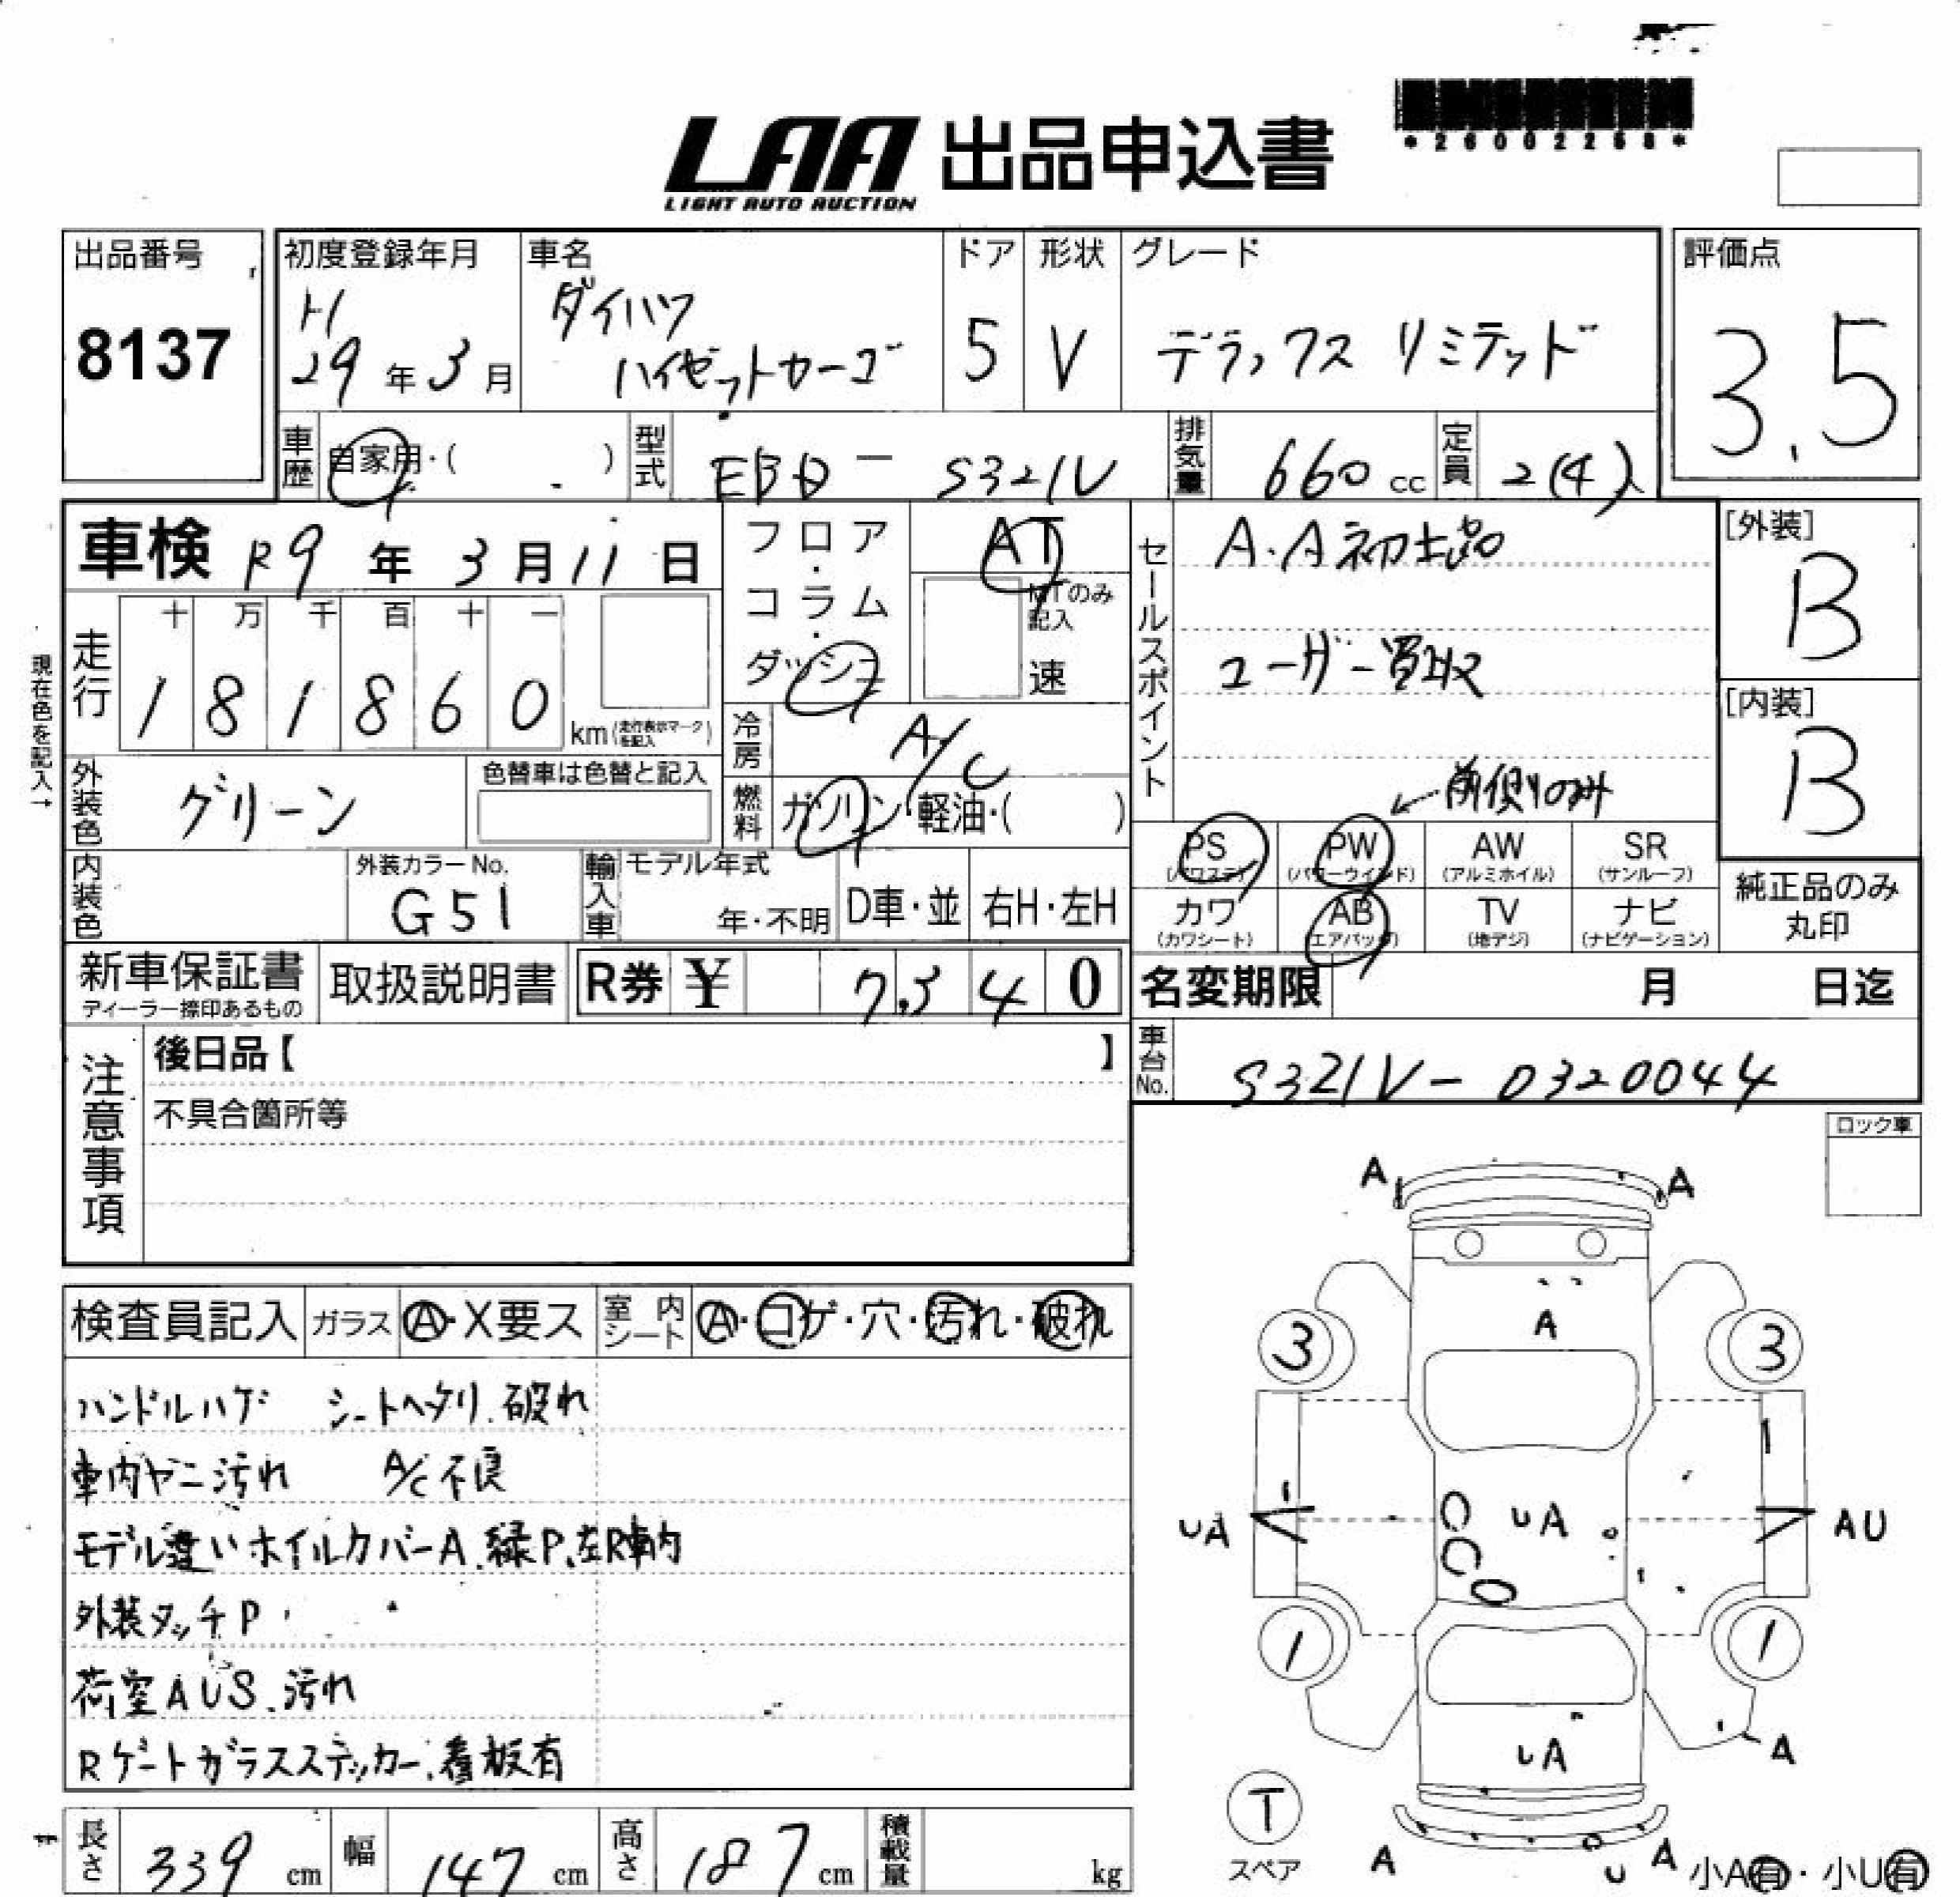 *26002258*
LAA 出品申込書
LIGHT AUTO AUCTION
出品番号
8137
初度登録年月
H
29年3月
車名
ダイハツ
ハイゼットカーゴ
ドア
5
形状
V
グレード
デラックス リミテッド
評価点
3.5
車歴
自家用・( )
型式
EBD - S321V
排気量
660cc
定員
2(4)
車検 R9年3月11日
フロア・コラム・ダッシュ
AT
MTのみ記入
速
走行
十 万 千 百 十 一
1 8 1 8 6 0
km(走行表示マークを記入)
現在色を記入→
外装色
グリーン
色替車は色替と記入
冷房
A/C
燃料
ガソリン・軽油・( )
内装色
外装カラーNo.
G51
輸入車
モデル年式
年・不明
D車・並
右H・左H
セールスポイント
A.A初出品
ユーザー買取
←前側のみ
PS
(パワステ)
PW
(パワーウインド)
AW
(アルミホイル)
SR
(サンルーフ)
カワ
(カワシート)
AB
(エアバッグ)
TV
(地デジ)
ナビ
(ナビゲーション)
[外装]
B
[内装]
B
純正品のみ
丸印
新車保証書
ディーラー捺印あるもの
取扱説明書
R券 ¥ 7,340
名変期限 月 日迄
車台No.
S321V-0320044
注意事項
後日品【 】
不具合箇所等
ロック車
検査員記入
ガラス
A・X要ス
室内シート
A・コゲ・穴・汚れ・破れ
ハンドルハゲ シートヘタリ.破れ
車内ヤニ汚れ A/C不良
モデル違いホイルカバーA.緑P、左R車内
外装タッチP
荷室AUS.汚れ
Rゲートガラスステッカー.看板有
A A
A
3 3
UA UA AU
1 1
UA A
T
スペア
A U A
小A有・小U有
長さ 339cm
幅 147cm
高さ 187cm
積載量 kg